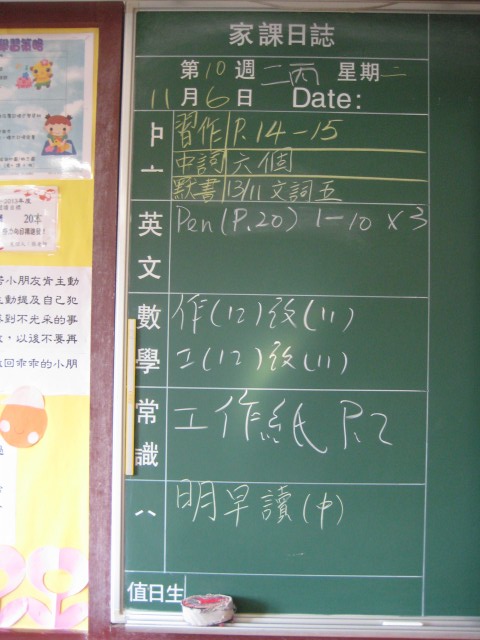 家課日誌
第10週 二丙 星期二
11月6日 Date:
習作 P.14-15
中詞 六個
默書 13/11 文詞五
英文 Pen (P.20) 1-10 x3
數學 作(12)改(11)
工(12)改(11)
常識 工作紙 P.2
明早讀(中)
值日生
20本
小朋友肯主動
主動提及自己犯
到不光采的事
以後不要再
回乖乖的小朋